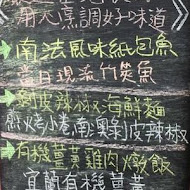 火烹調好味道
南法風味紙包魚
當日現流竹筴魚
剝皮辣椒海鮮麵
烤小卷南澳剝皮辣椒
有機薑黃雞肉燉飯
宜蘭有機薑黃